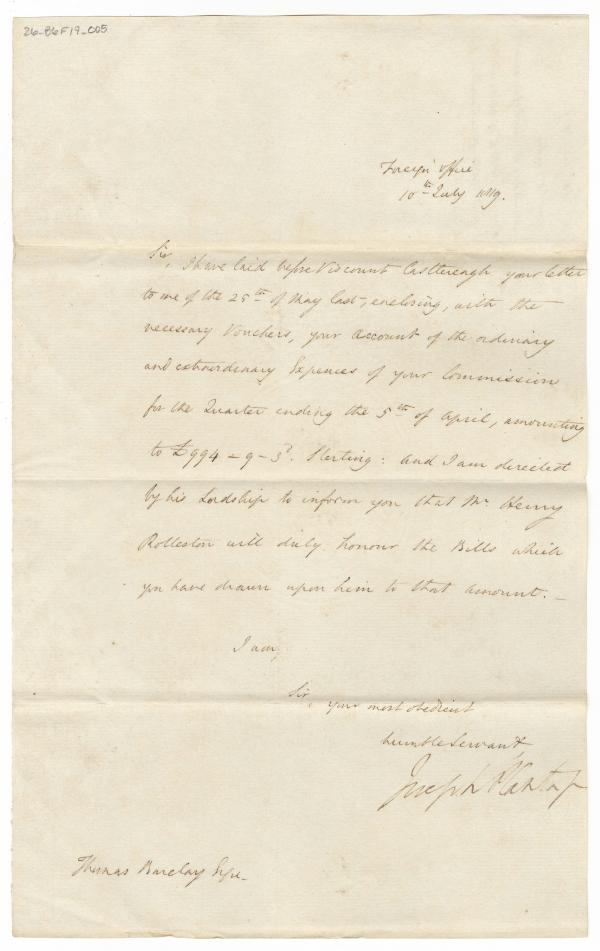 26-B6F19-005
Foreign Office
10th July 1819.
Sir, I have laid before Viscount Castlereagh your letter
to me of the 25th of May last, enclosing, with the
necessary Vouchers, your Account of the ordinary
and extraordinary Expences of your Commission
for the Quarter ending the 5th of April, amounting
to £994-9-3d. Sterling: and I am directed
by his Lordship to inform you that Mr. Henry
Rolleston will duly honour the Bills which
you have drawn upon him to that amount. _
I am,
Sir, your most obedient
humble Servant,
Joseph Planta Jr
Thomas Barclay Esqre.